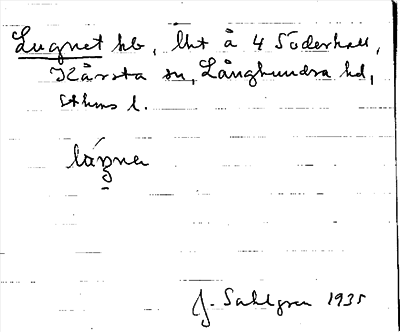 Lugnet hb, lht å 4 Söderhall,
Kårsta sn, Långhundra hd,
Sthms l.
lúgnen
J. Sahlgren 1935